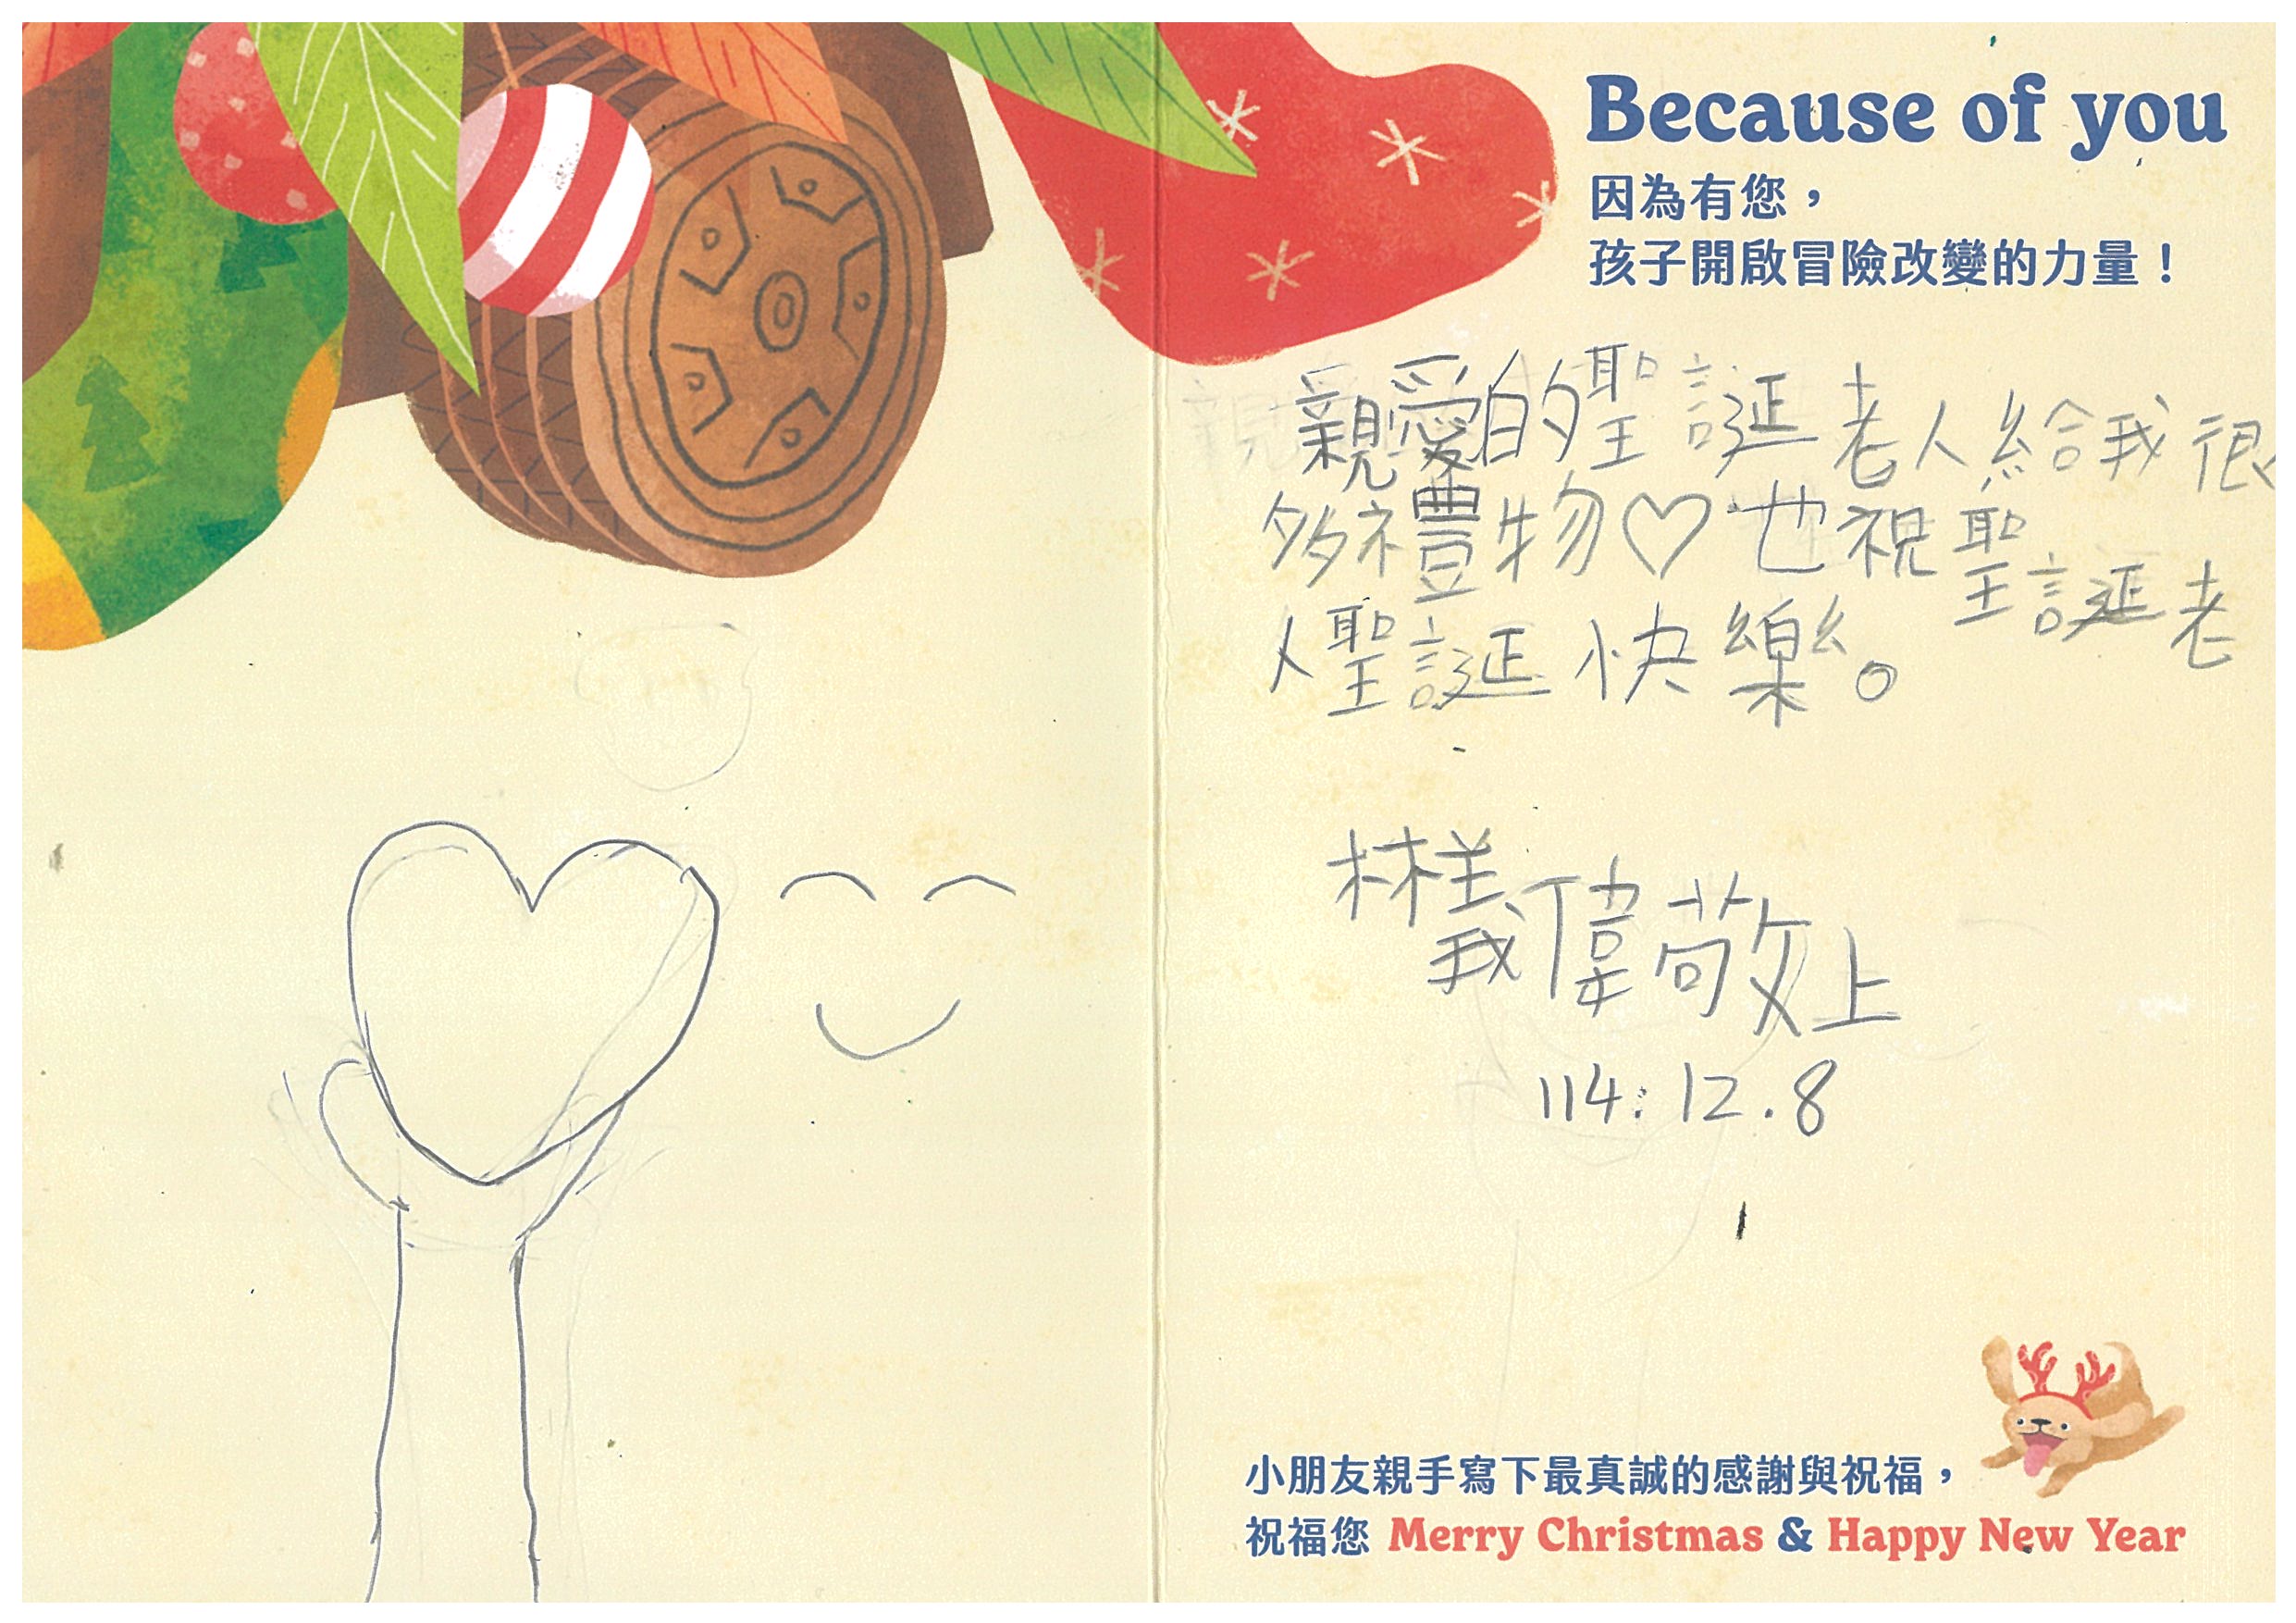 Because of you
因為有您，
孩子開啟冒險改變的力量！
親愛的聖誕老人給我很
多禮物♡也祝聖誕老
人聖誕快樂。
林義偉敬上
114.12.8
小朋友親手寫下最真誠的感謝與祝福，
祝福您 Merry Christmas & Happy New Year